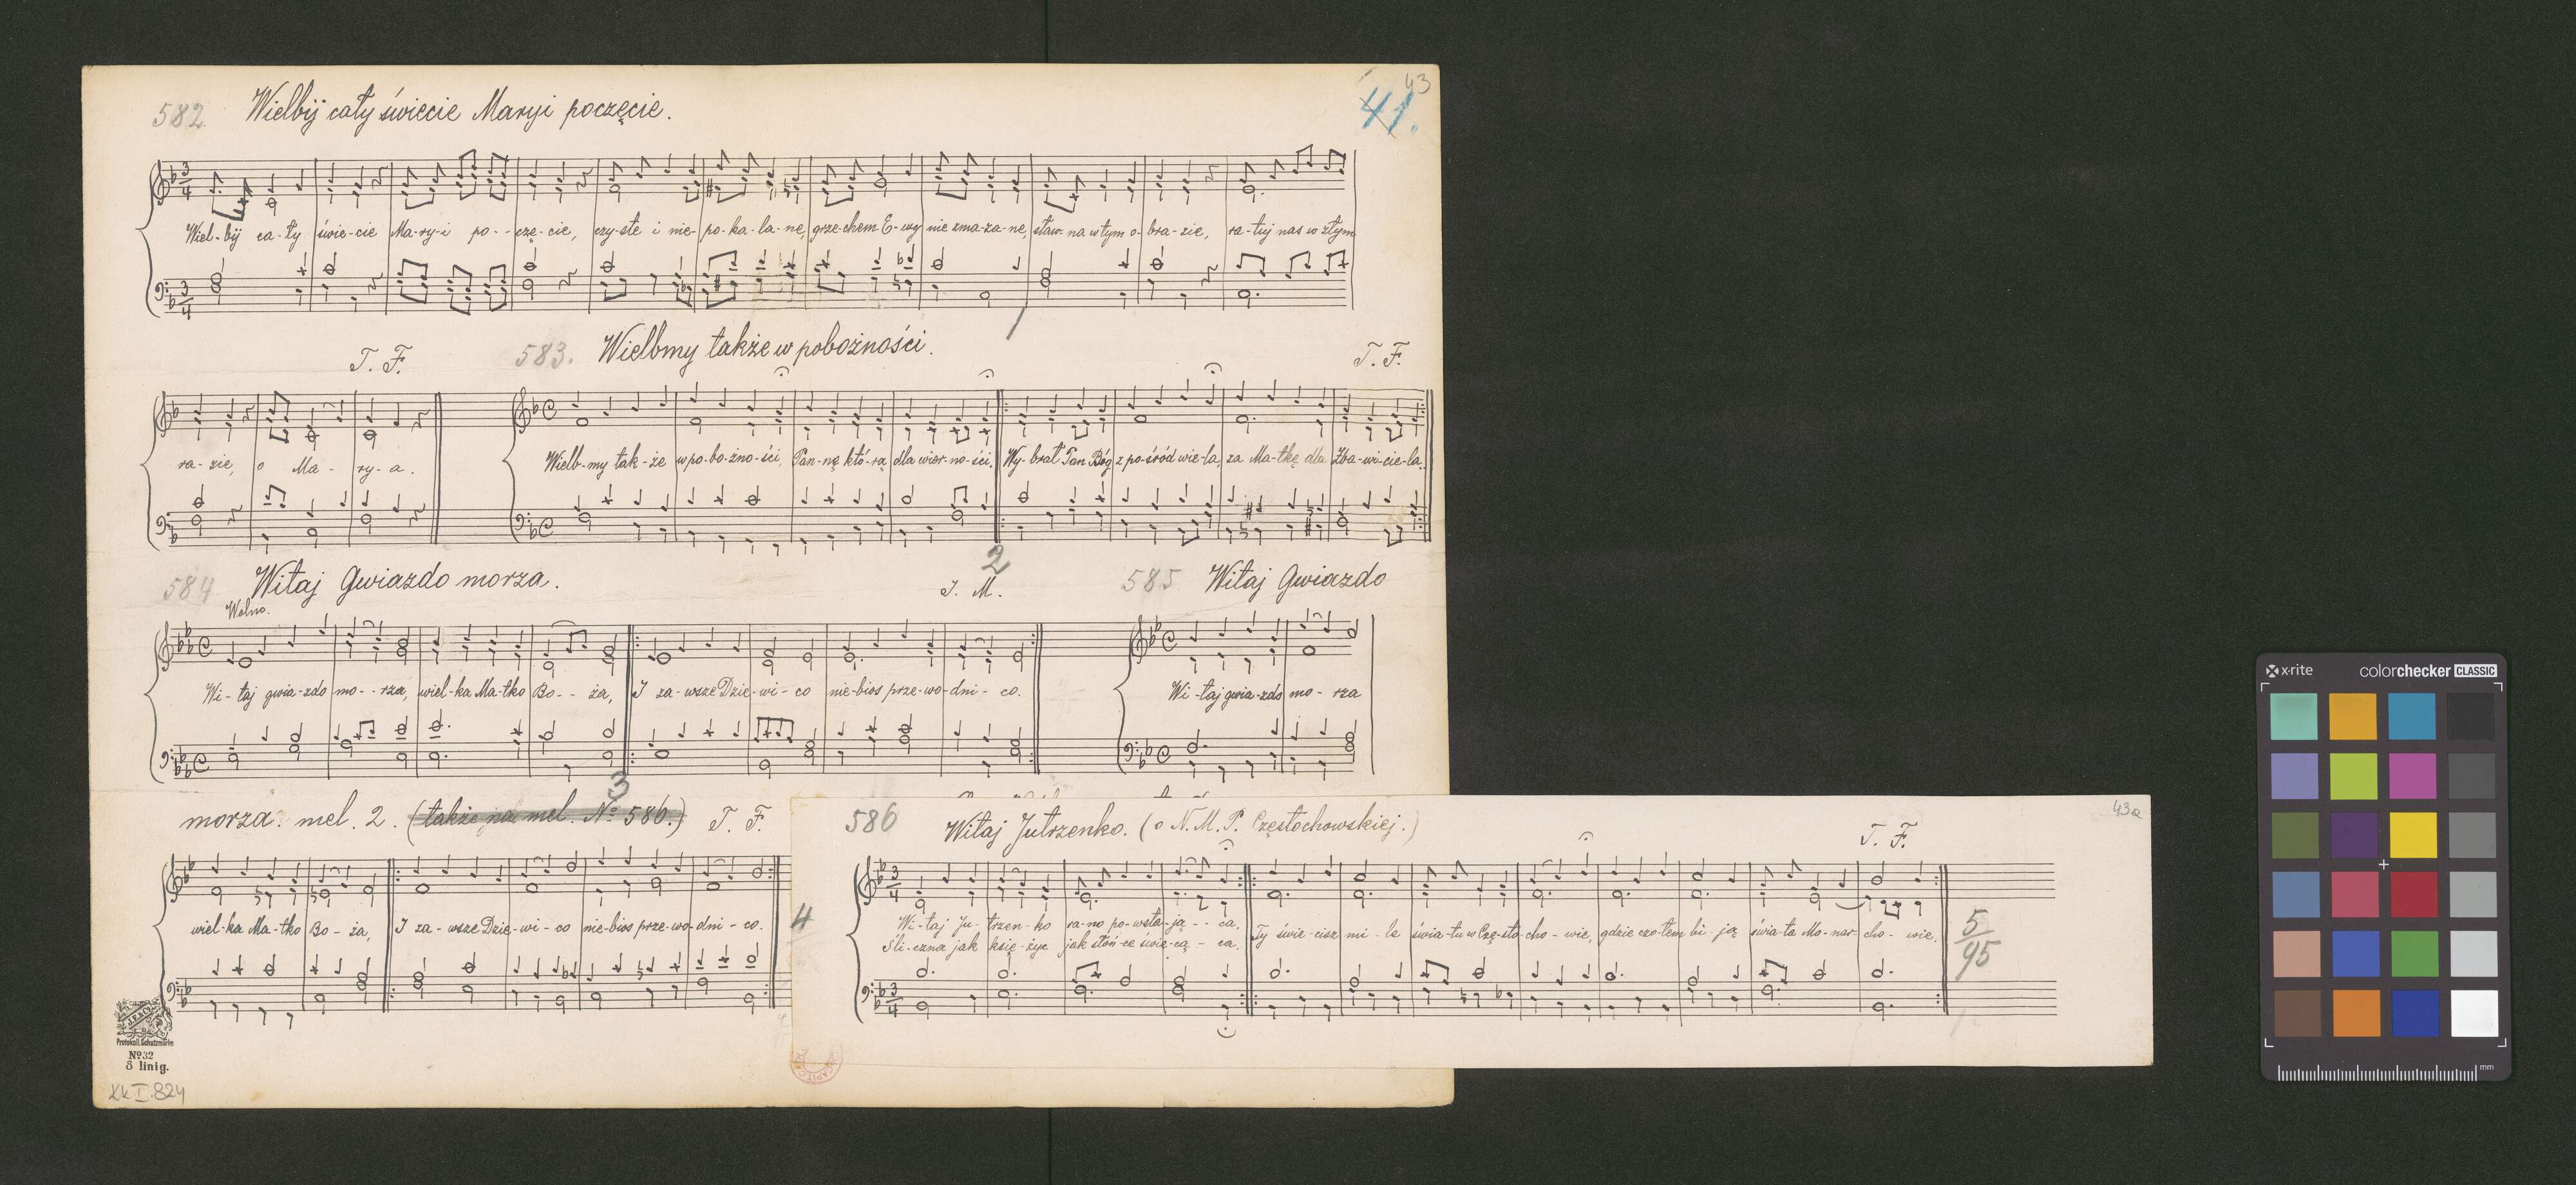 43
41.
582. Wielbij cały świecie Maryi poczęcie.
Wiel-bij ca-ły świe-cie Ma-ry-i po--czę-cie, czy-ste i nie-po-ka-la-ne, grze-chem E-wy nie zma-za-ne, sław-na w tym o-bra-zie, ra-tuj nas w złym
T. F. 583. Wielbmy także w pobożności. T. F.
ra-zie, o Ma-ry-a. Wielb-my tak-że w po-bo-żno-ści, Pan-nę któ-rą dla wier-no-ści, Wy-brał Pan Bóg z po-śród wie-la, za Ma-tkę dla Zba-wi-cie-la.
584 Witaj Gwiazdo morza. J. M. 585 Witaj Gwiazdo
Wolno.
2
Wi-taj gwia-zdo mo--rza, wiel-ka Ma-tko Bo--ża, I za-wsze Dzie-wi-co nie-bios prze-wo-dni-co. Wi-taj gwia-zdo mo-rza
3
morza. mel. 2. (także na mel. No 586.) T. F.
wiel-ka Ma-tko Bo-ża, I za-wsze Dzie-wi-co nie-bios prze-wo-dni-co.
43a
586 Witaj Jutrzenko. (o N. M. P. Częstochowskiej.) T. F.
4
Wi-taj Ju-trzen-ko ra-no po-wsta-ją--ca, Ty świe-cisz mi-le świa-tu w Czę-sto-cho-wie, gdzie czo-łem bi-ją świa-ta Mo-nar-cho-wie.
Śli-czna jak księ-życ jak słoń-ce świe-cą-ca.
5
95
J.E. & Co.
Protokoll. Schutzmarke
No 32
8 linig.
Kk I.824
x-rite colorchecker CLASSIC
mm